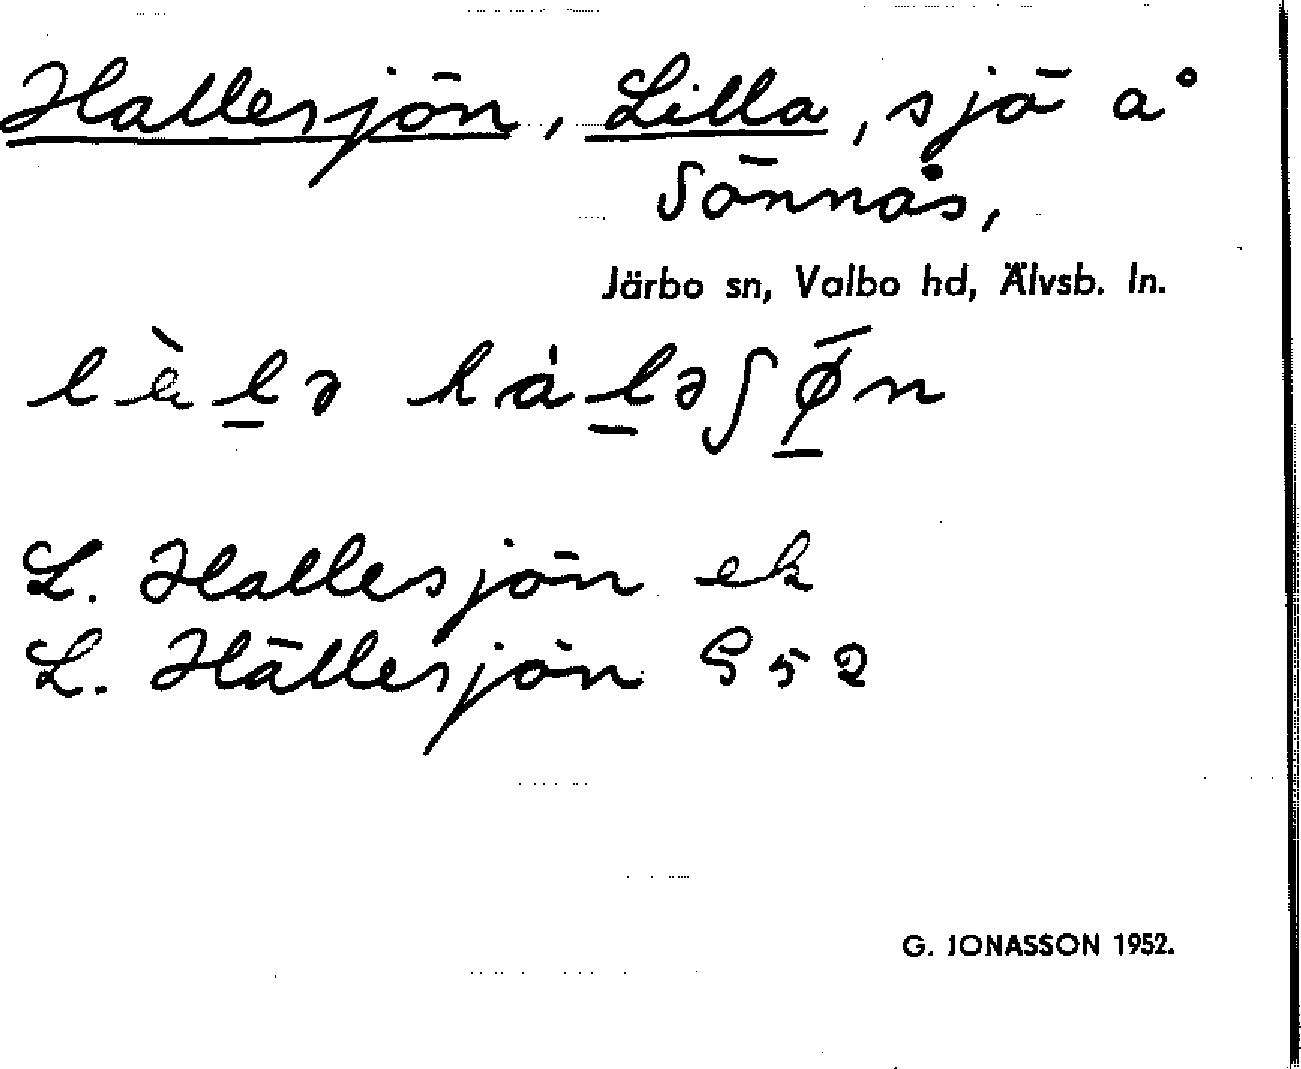 Hallesjön, Lilla, sjö å
Sönnås,
Järbo sn, Valbo hd, Älvsb. ln.
L. Hallesjön ek
L. Hällesjön G 52
G. JONASSON 1952.